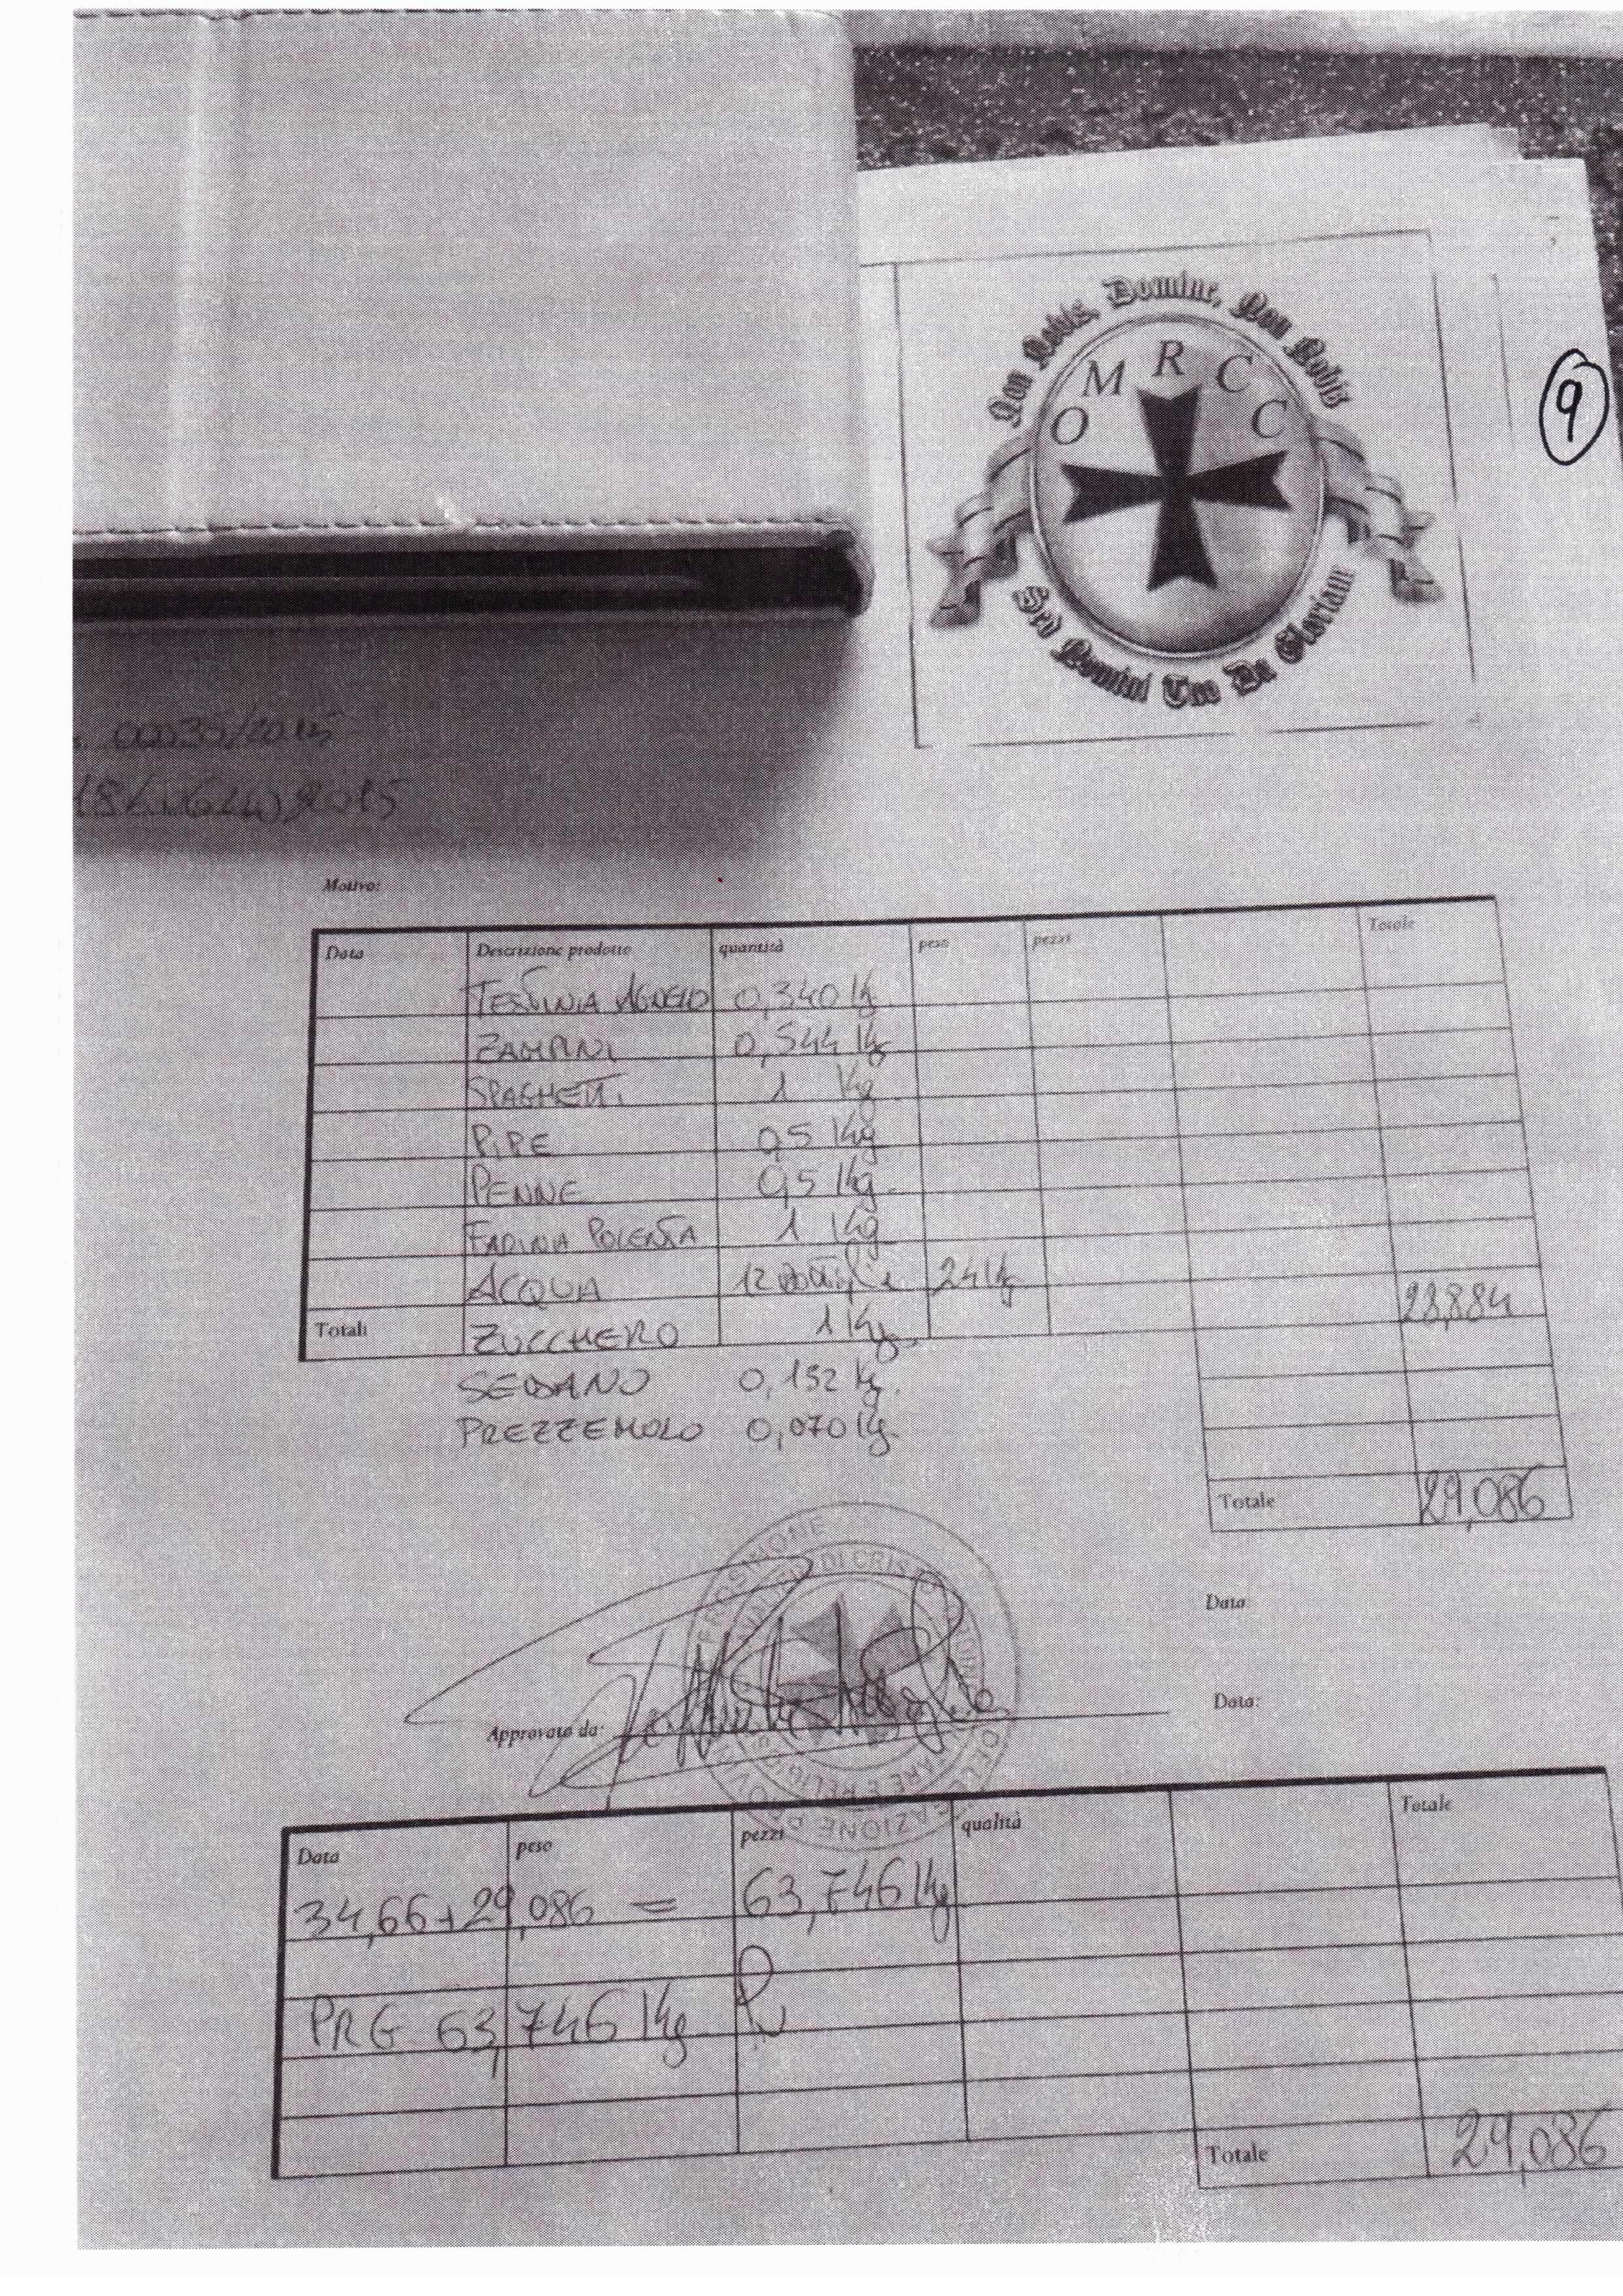 Non Nobis, Domine, Non Nobis
O M R C C
Sed Nomini Tuo Da Gloriam
9
00035/2015
2015
Motivo:
Data Descrizione prodotto quantità peso pezzi Totale
TESTINIA AGNELLO 0,340 Kg
ZAMPINI 0,544 Kg
SPAGHETTI 1 Kg
PIPE 0,5 Kg
PENNE 0,5 Kg
FARINA POLENTA 1 Kg
ACQUA 12 bottiglie 24 Kg
28,884
Totali ZUCCHERO 1 Kg
SEDANO 0,132 Kg.
PREZZEMOLO 0,070 Kg.
Totale 29,086
FROSINONE
DI CRISTO
Data:
Approvato da: Data:
Data peso pezzi qualità Totale
34,66+29,086 = 63,746 Kg
PRG 63,746 Kg
Totale 29,086